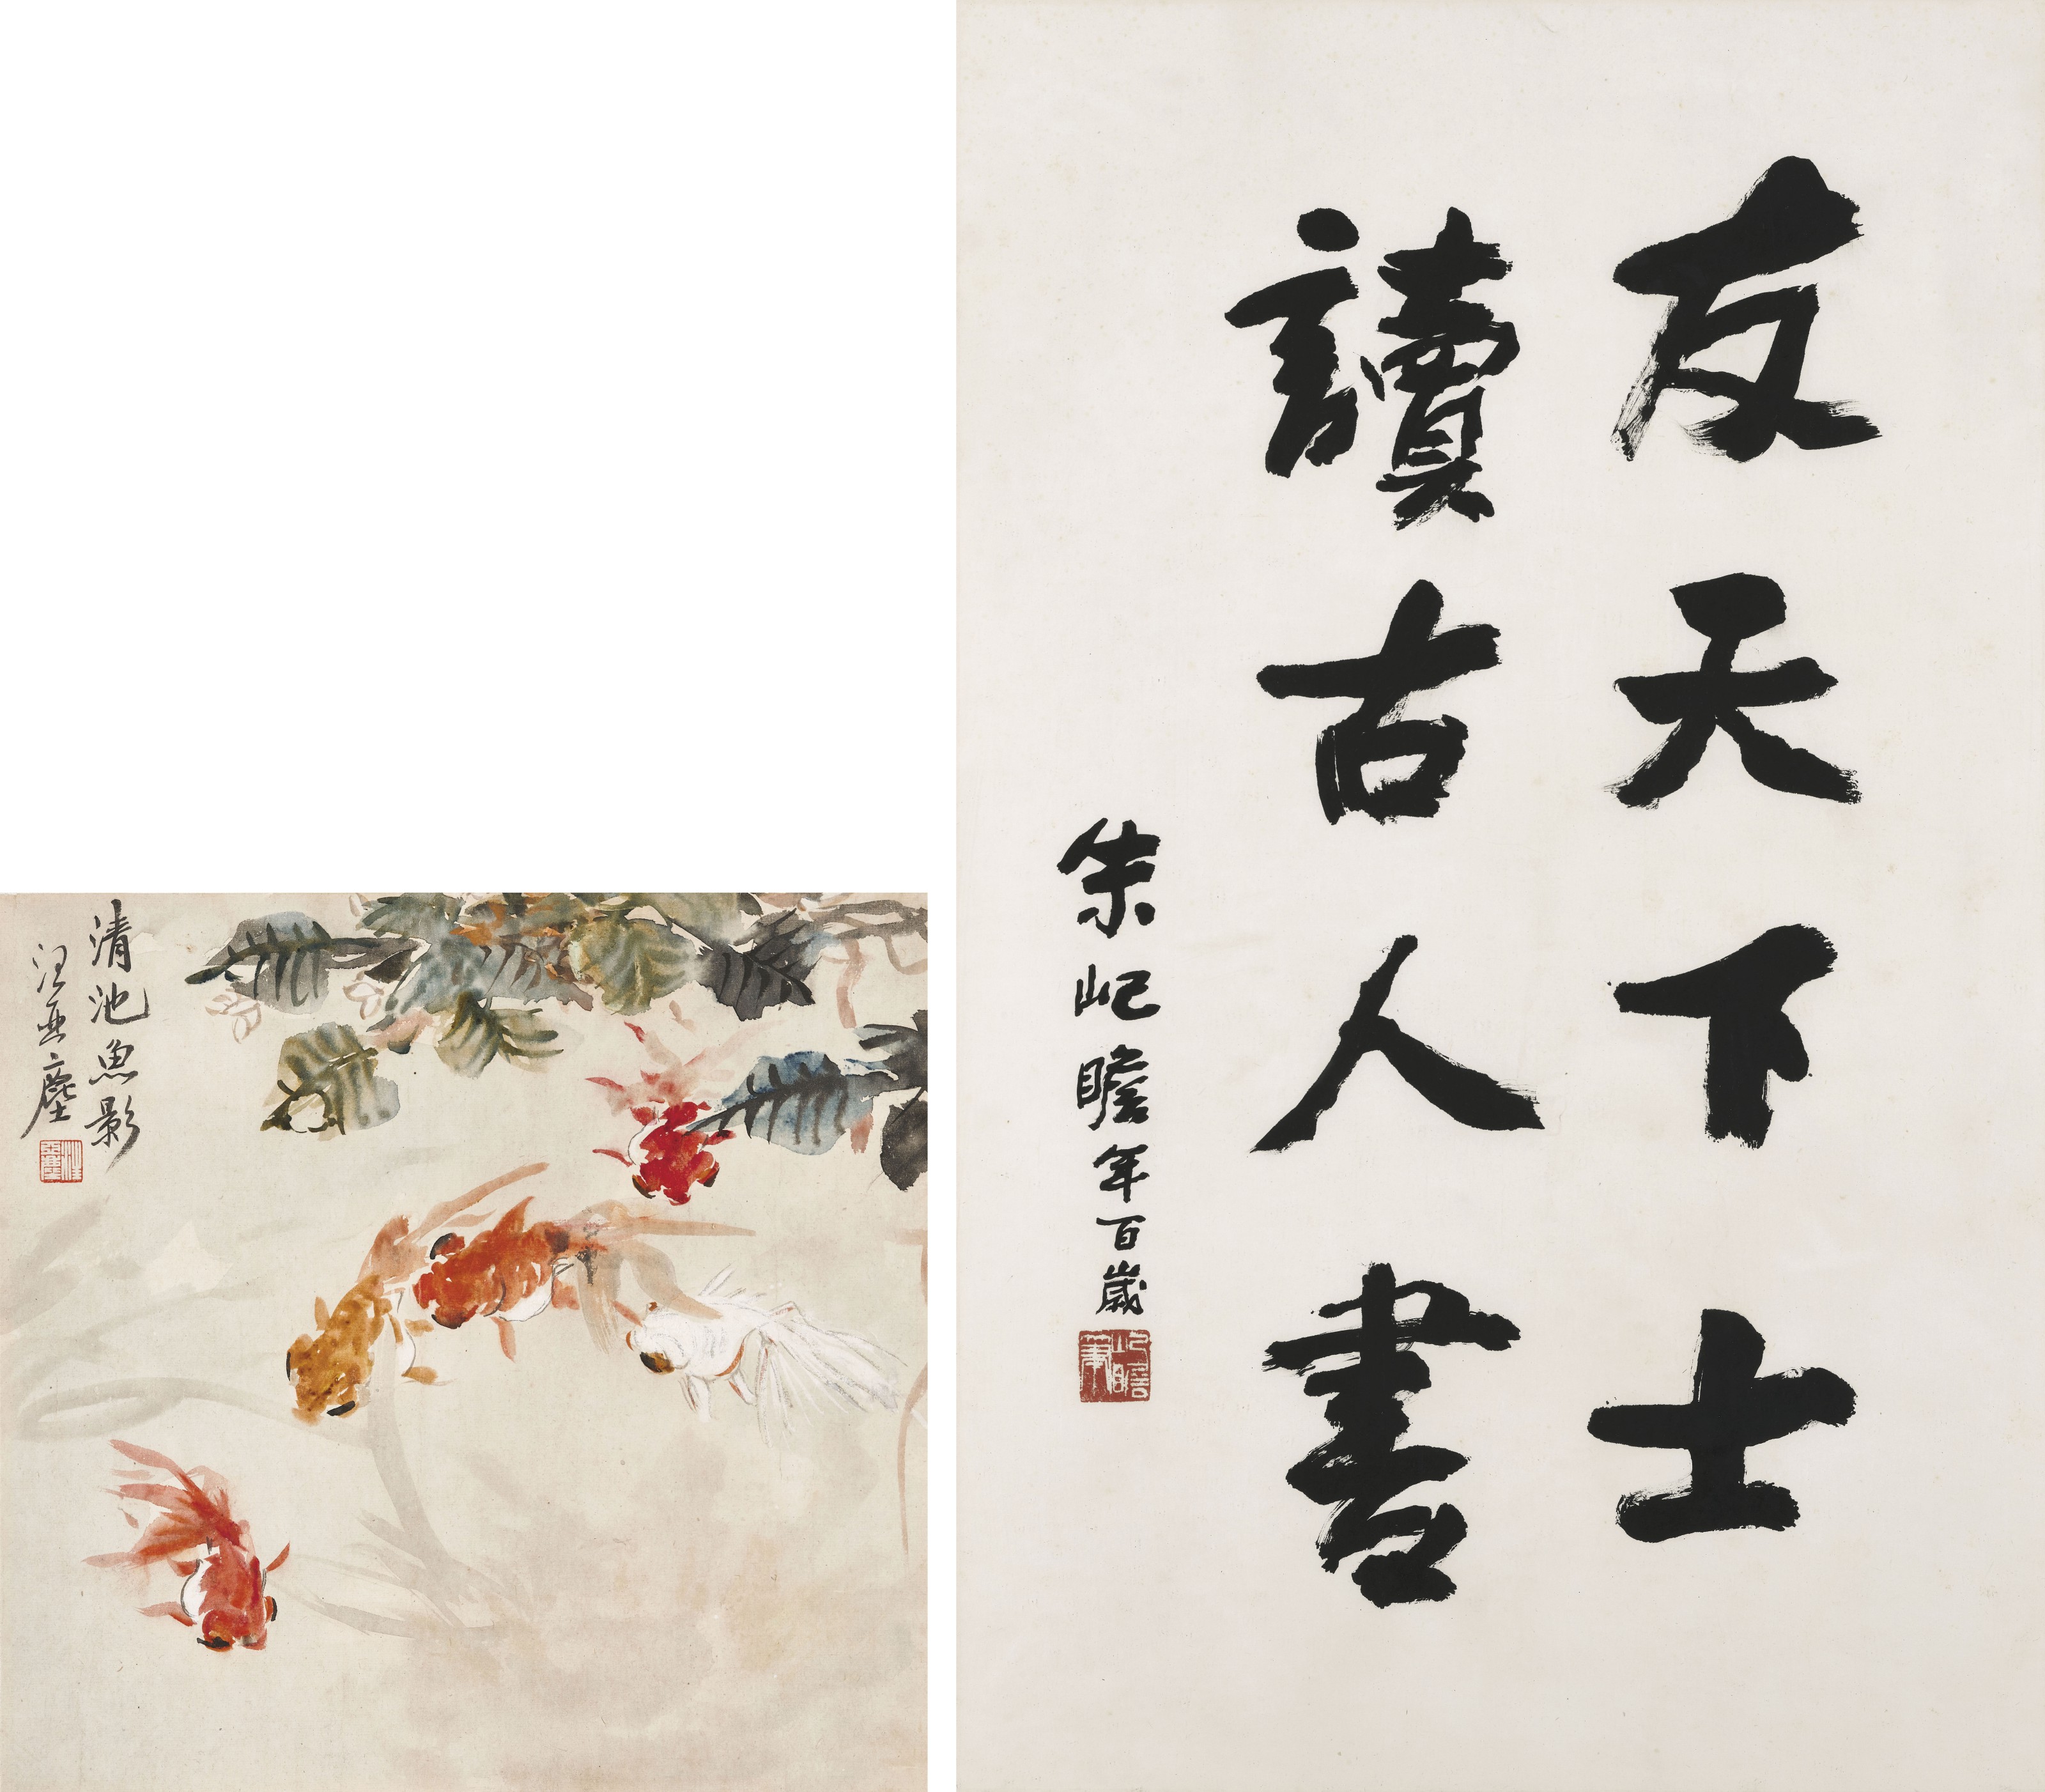 友天下士
讀古人書
朱屺瞻年百歲
屺瞻
清池魚影
汪亞塵
汪亞塵